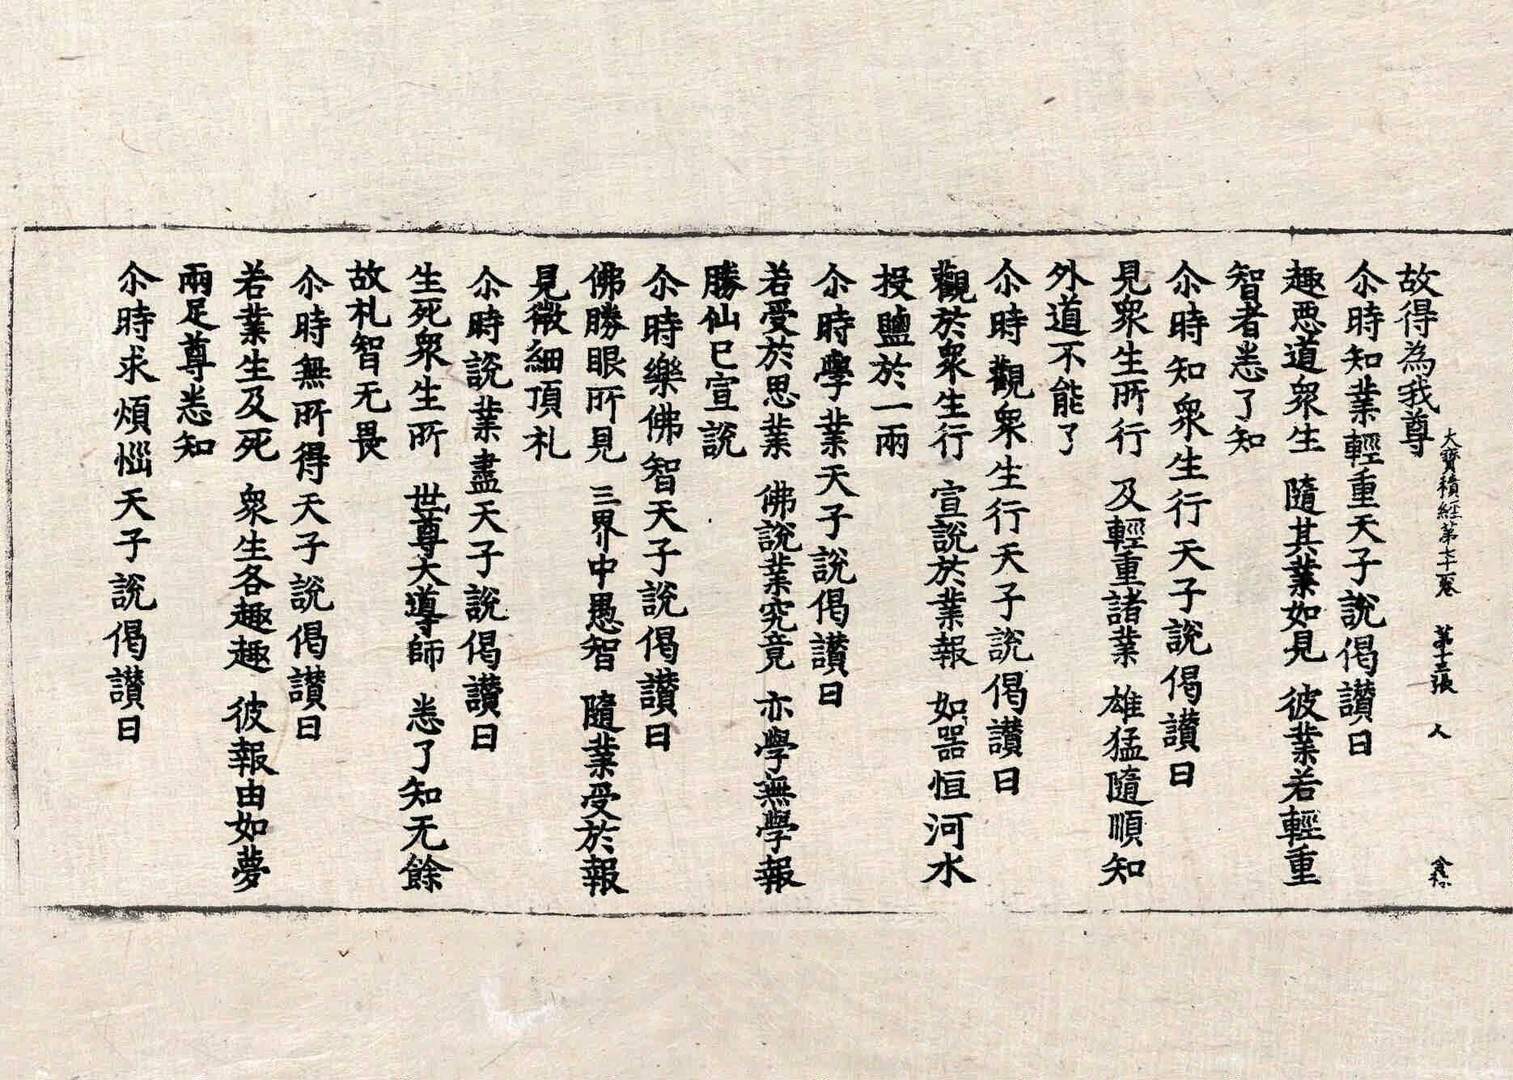 大寶積經第七十一卷 第十三張 人
故得為我尊
尒時知業輕重天子說偈讃曰
趣悪道衆生 隨其業如見 彼業若輕重
智者悉了知
尒時知衆生行天子說偈讃曰
見衆生所行 及輕重諸業 雄猛隨順知
外道不能了
尒時觀衆生行天子說偈讃曰
觀於衆生行 宣說於業報 如器恒河水
投鹽於一兩
尒時學業天子說偈讃曰
若受於思業 佛說業究竟 亦學無學報
勝仙巳宣說
尒時樂佛智天子說偈讃曰
佛勝眼所見 三界中愚智 隨業受於報
見微細頂札
尒時說業盡天子說偈讃曰
生死衆生所 世尊大導師 悉了知无餘
故札智无畏
尒時無所得天子說偈讃曰
若業生及死 衆生各趣趣 彼報由如夢
兩足尊悉知
尒時求煩惱天子說偈讃曰